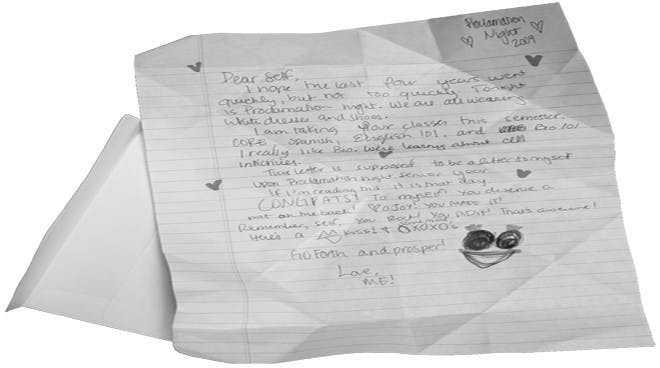 Proclamation
Night
2009
Dear Self,
I hope the last four years went
quickly, but not too quickly. Tonight
is Proclamation night. We are all wearing
white dresses and shoes.
I am taking four classes this semester.
CORE, Spanish, English 101, and Bio 101
I really like Bio. We're learning about cell
This letter is supposed to be a letter to myself
upon Proclamation night senior year.
If I'm reading this it is that day.
CONGRATS! TO MYSELF! YOU deserve a
pat on the back! YOU MADE IT!
Remember, self, YOU ROCK! YOU DID IT! That's awesome!
Here's a kiss! & XOXO's
GO FORTH and prosper!
Love,
ME!